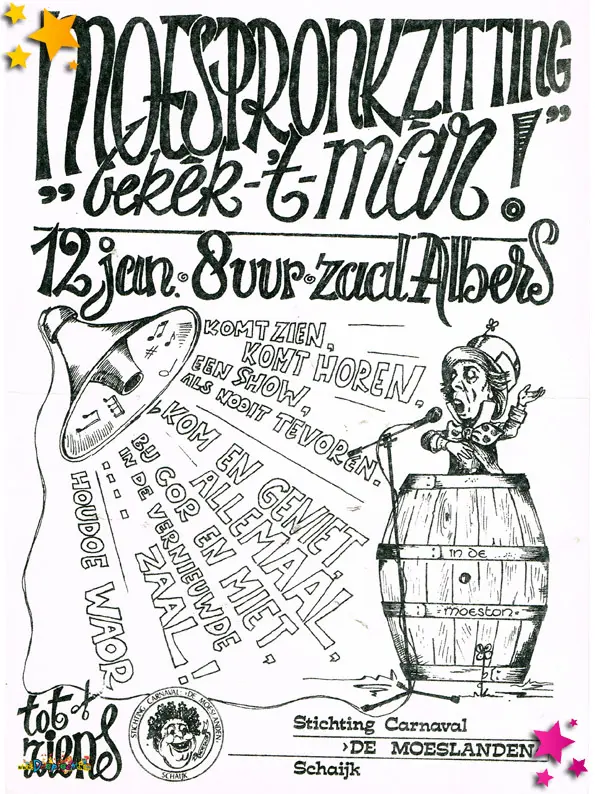 MOESPRONKZITTING
„bekêk-'t-mār!”
12 jan. 8 uur zaal Albers
KOMT ZIEN,
KOMT HOREN,
EEN SHOW,
ALS NOOIT TEVOREN.
KOM EN GENIET
ALLEMAAL,
BIJ COR EN MIET,
IN DE VERNIEUWDE
ZAAL!
....
HOUDOE WAOR
IN DE
MOESTON
tot
ziens
STICHTING CARNAVAL "DE MOESLANDEN"
SCHAIJK
Stichting Carnaval
›DE MOESLANDEN
Schaijk